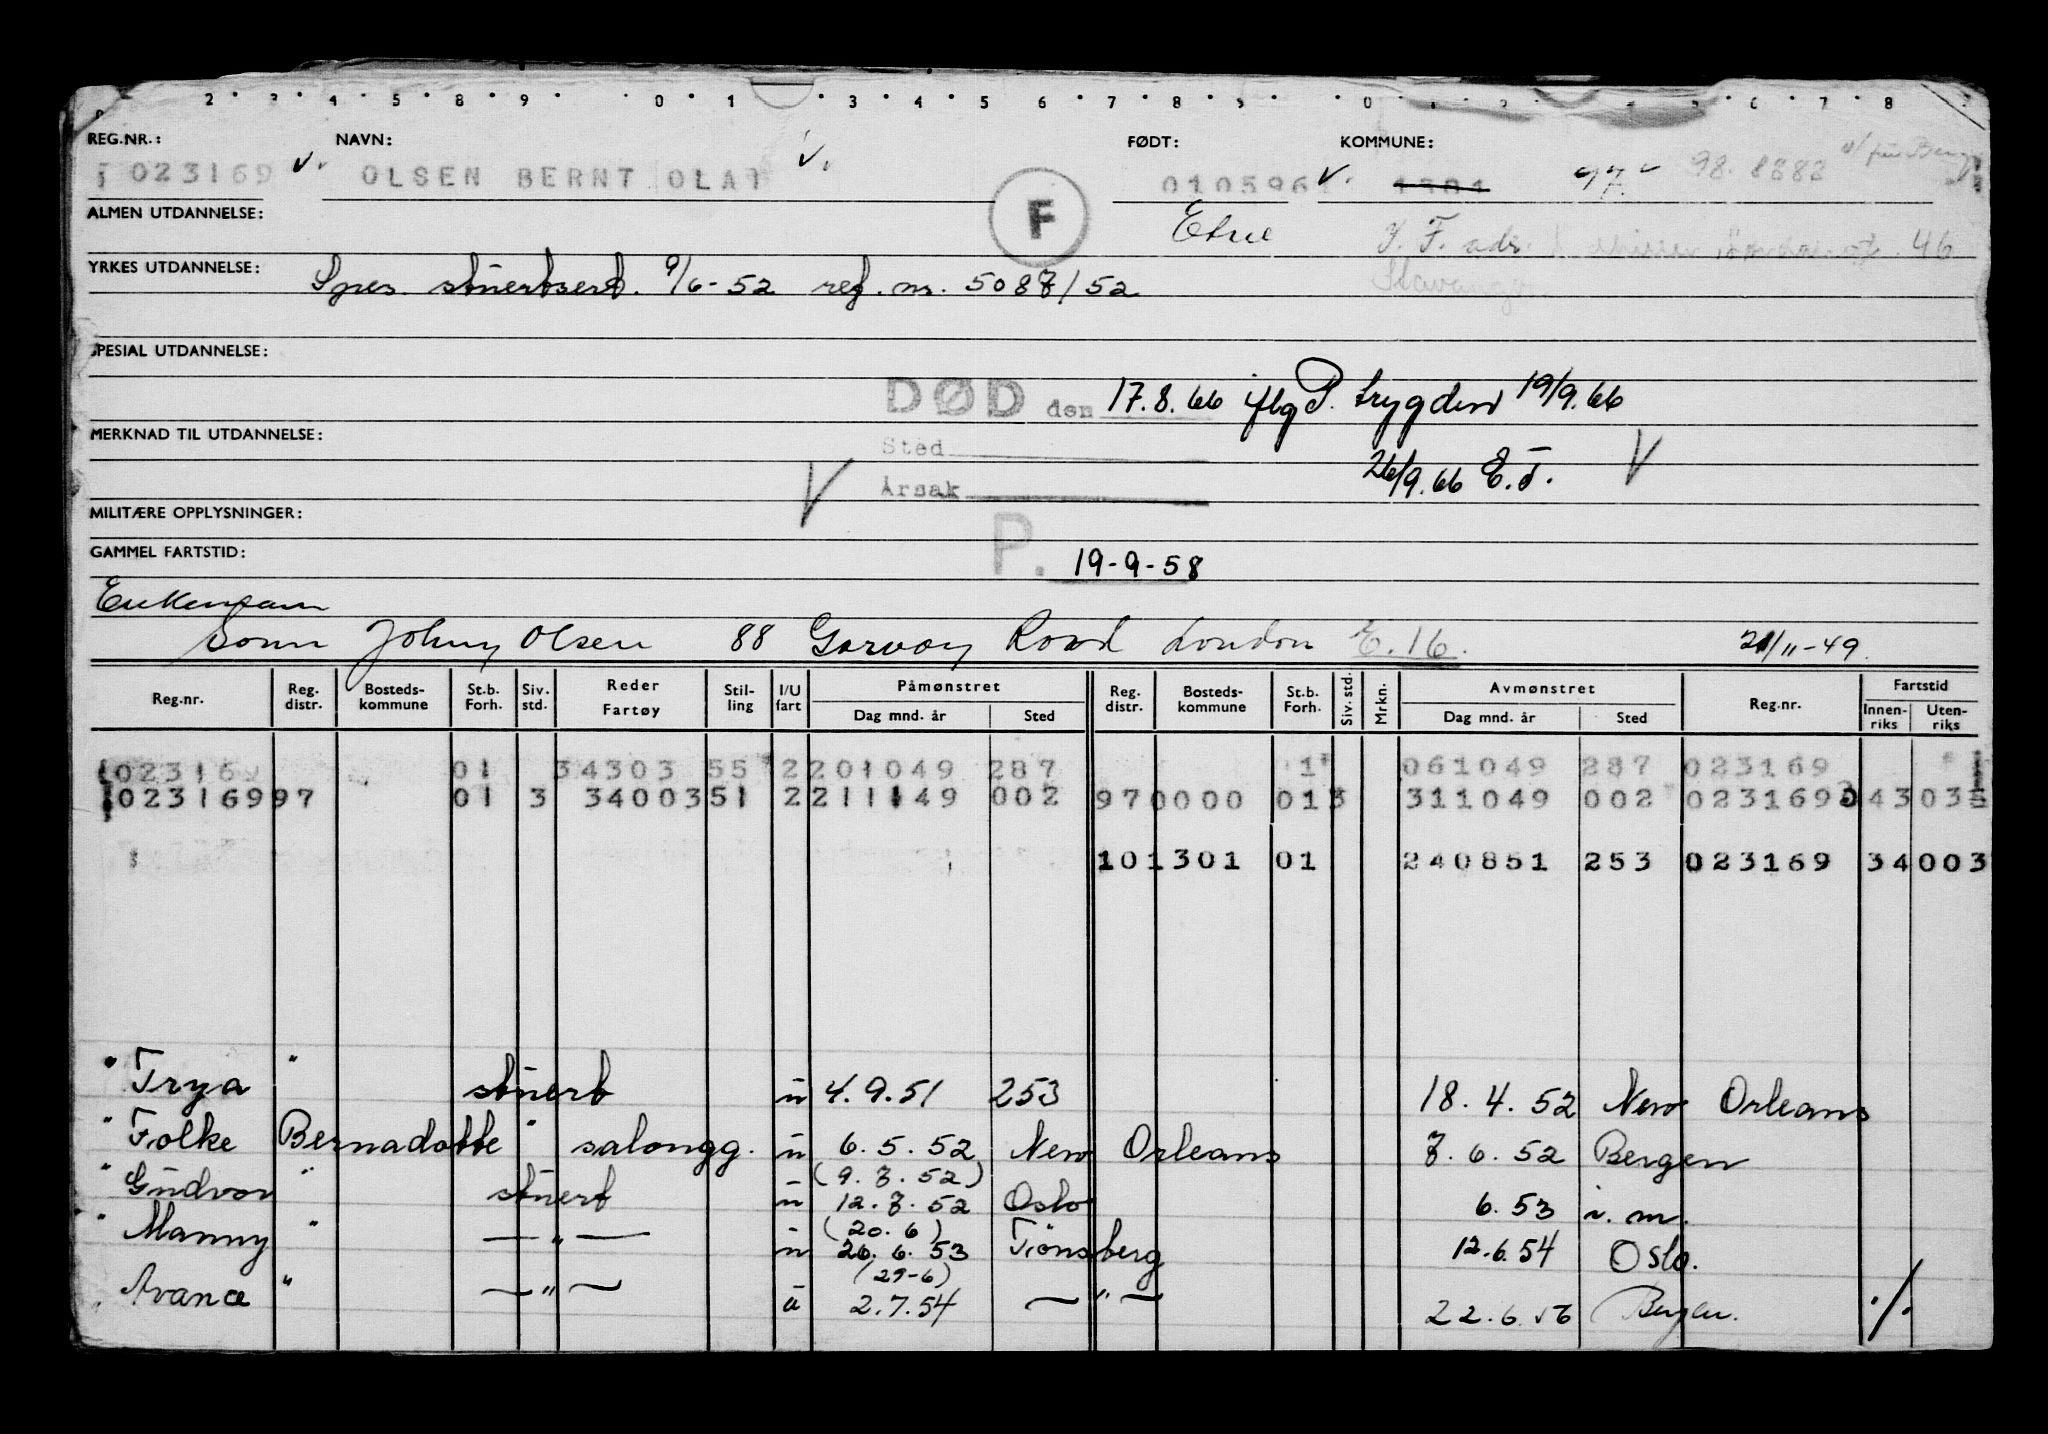 REG.NR.: NAVN: FØDT: KOMMUNE:
023169 OLSEN BERNT OLAF 010596 1301 97 98. 8888
ALMEN UTDANNELSE: F Etne
46
YRKES UTDANNELSE: Spes. stuertsert. 9/6-52 reg. nr. 5087/52 Stavanger
SPESIAL UTDANNELSE:
DØD den 17.8.66 iflg P. trygden 19/9.66
MERKNAD TIL UTDANNELSE:
Sted
26/9.66 E.T.
Årsak
MILITÆRE OPPLYSNINGER:
GAMMEL FARTSTID: P. 19-9-58
Enkemann
Sønn Johny Olsen 88 Garvay Road London E.16. 21/11-49
Reg.nr. Reg. distr. Bosteds-kommune St.b. Forh. Siv. std. Reder Fartøy Stil-ling I/U fart Påmønstret Dag mnd. år Sted Reg. distr. Bosteds-kommune St.b. Forh. Siv. std. Mrkn. Avmønstret Dag mnd. år Sted Reg.nr. Fartstid Innen-riks Uten-riks
023169 01 34303 55 2 201049 287 1 061049 287 023169
023169 97 01 3 34003 51 2 211149 002 97 0000 01 3 311049 002 023169 3 43 035
10 1301 01 240851 253 023169 34 003
" Trya " stuert u 4.9.51 253 18.4.52 New Orleans
" Folke Bernadotte " salongg. u 6.5.52 New Orleans 7.6.52 Bergen
(9.7.52)
" Gudvor " stuert u 12.7.52 Oslo 6.53 i.m.
(20.6)
" Manny " — " — u 26.6.53 Tönsberg 12.6.54 Oslo.
(29-6)
" Avance " — " — u 2.7.54 — " — 22.6.56 Bergen. ./.